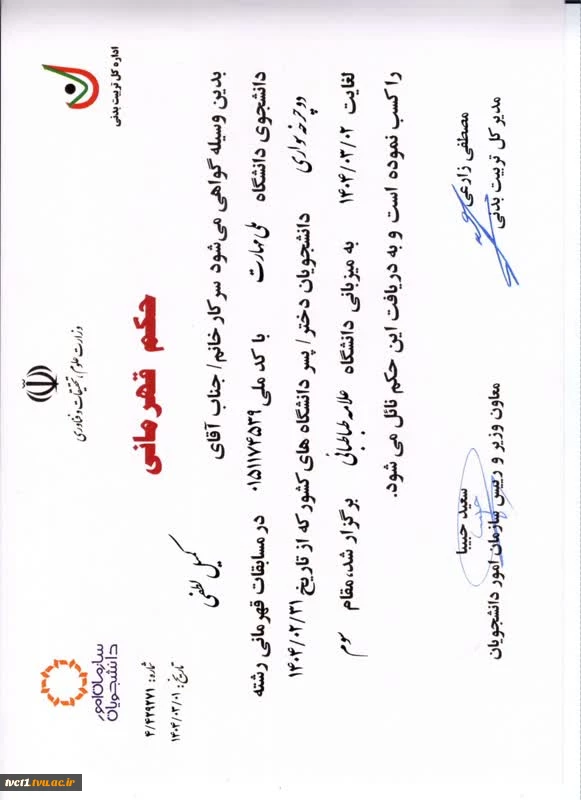 اداره کل تربیت بدنی
وزارت علوم، تحقیقات و فناوری
سازمان امور دانشجویان
شماره: ۴/۴۲۹۲۷۱
تاریخ: ۱۴۰۴/۰۳/۰۱
حکم قهرمانی
بدین وسیله گواهی می‌شود سرکار خانم/ جناب آقای کمیل لطفی
دانشجوی دانشگاه ملی مهارت با کد ملی ۰۱۵۱۱۷۴۵۳۹ در مسابقات قهرمانی رشته
دوچرخه سواری دانشجویان دختر/ پسر دانشگاه های کشور که از تاریخ ۱۴۰۴/۰۲/۳۱
لغایت ۱۴۰۴/۰۳/۰۲ به میزبانی دانشگاه علامه طباطبائی برگزار شد، مقام سوم
را کسب نموده است و به دریافت این حکم نائل می شود.
مصطفی زارعی
مدیر کل تربیت بدنی
سعید حبیبا
معاون وزیر و رییس سازمان امور دانشجویان
tvct1.tvu.ac.ir